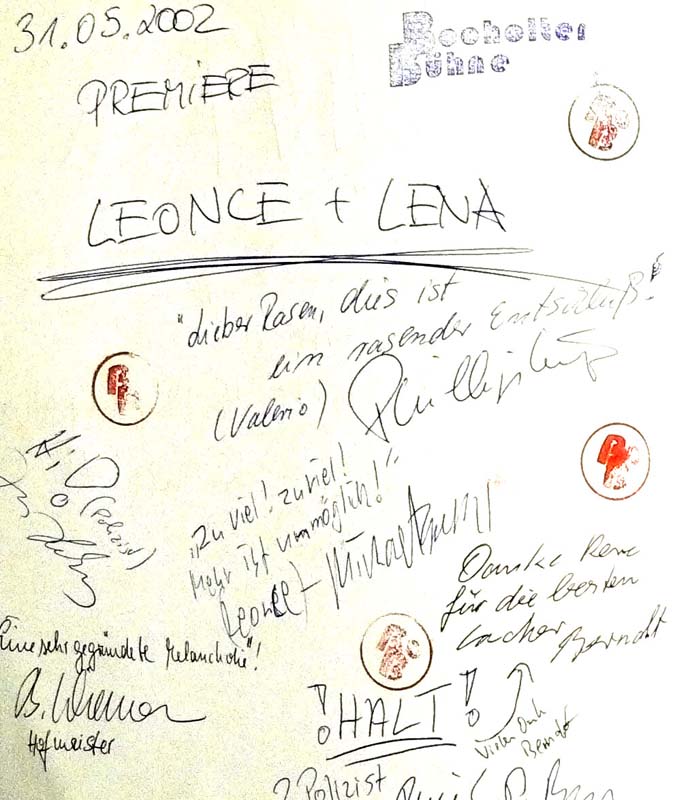 31.05.2002
Bocholter
Bühne
PREMIERE
LEONCE + LENA
"Lieber Rasen, dies ist
ein rasender Entschluß."
(Valerio)
(Polizist)
"Zu viel! zu viel!
Mehr ist unmöglich!"
Leonce
Danke Rene
für die besten
Lacher Berndt
Eine sehr gegründete Melancholie"!
Hofmeister
!HALT!
Vielen Dank
Berndt
2 Polizist